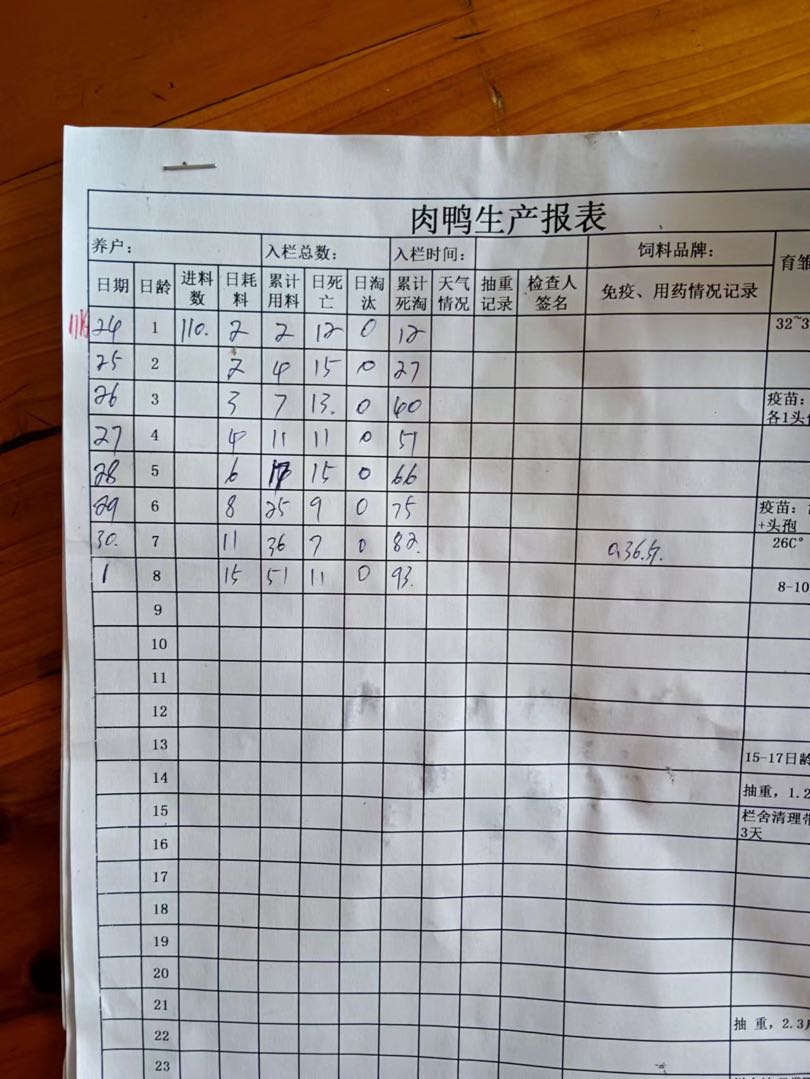 肉鸭生产报表
养户： 入栏总数： 入栏时间： 饲料品牌： 育雏
日期 日龄 进料数 日耗料 累计用料 日死亡 日淘汰 累计死淘 天气情况 抽重记录 检查人签名 免疫、用药情况记录
24 1 110. 2 2 12 0 12 32~3
25 2 2 4 15 0 27
26 3 3 7 13. 0 40 疫苗：
各1头份
27 4 4 11 11 0 51
28 5 6 17 15 0 66
29 6 8 25 9 0 75 疫苗：
+头孢
30. 7 11 36 7 0 82. 0.36斤. 26C°
1 8 15 51 11 0 93. 8-10
9
10
11
12
13
15-17日龄
14
抽重，1.2
15
栏舍清理带
3天
16
17
18
19
20
21
22 抽 重，2.3斤
23